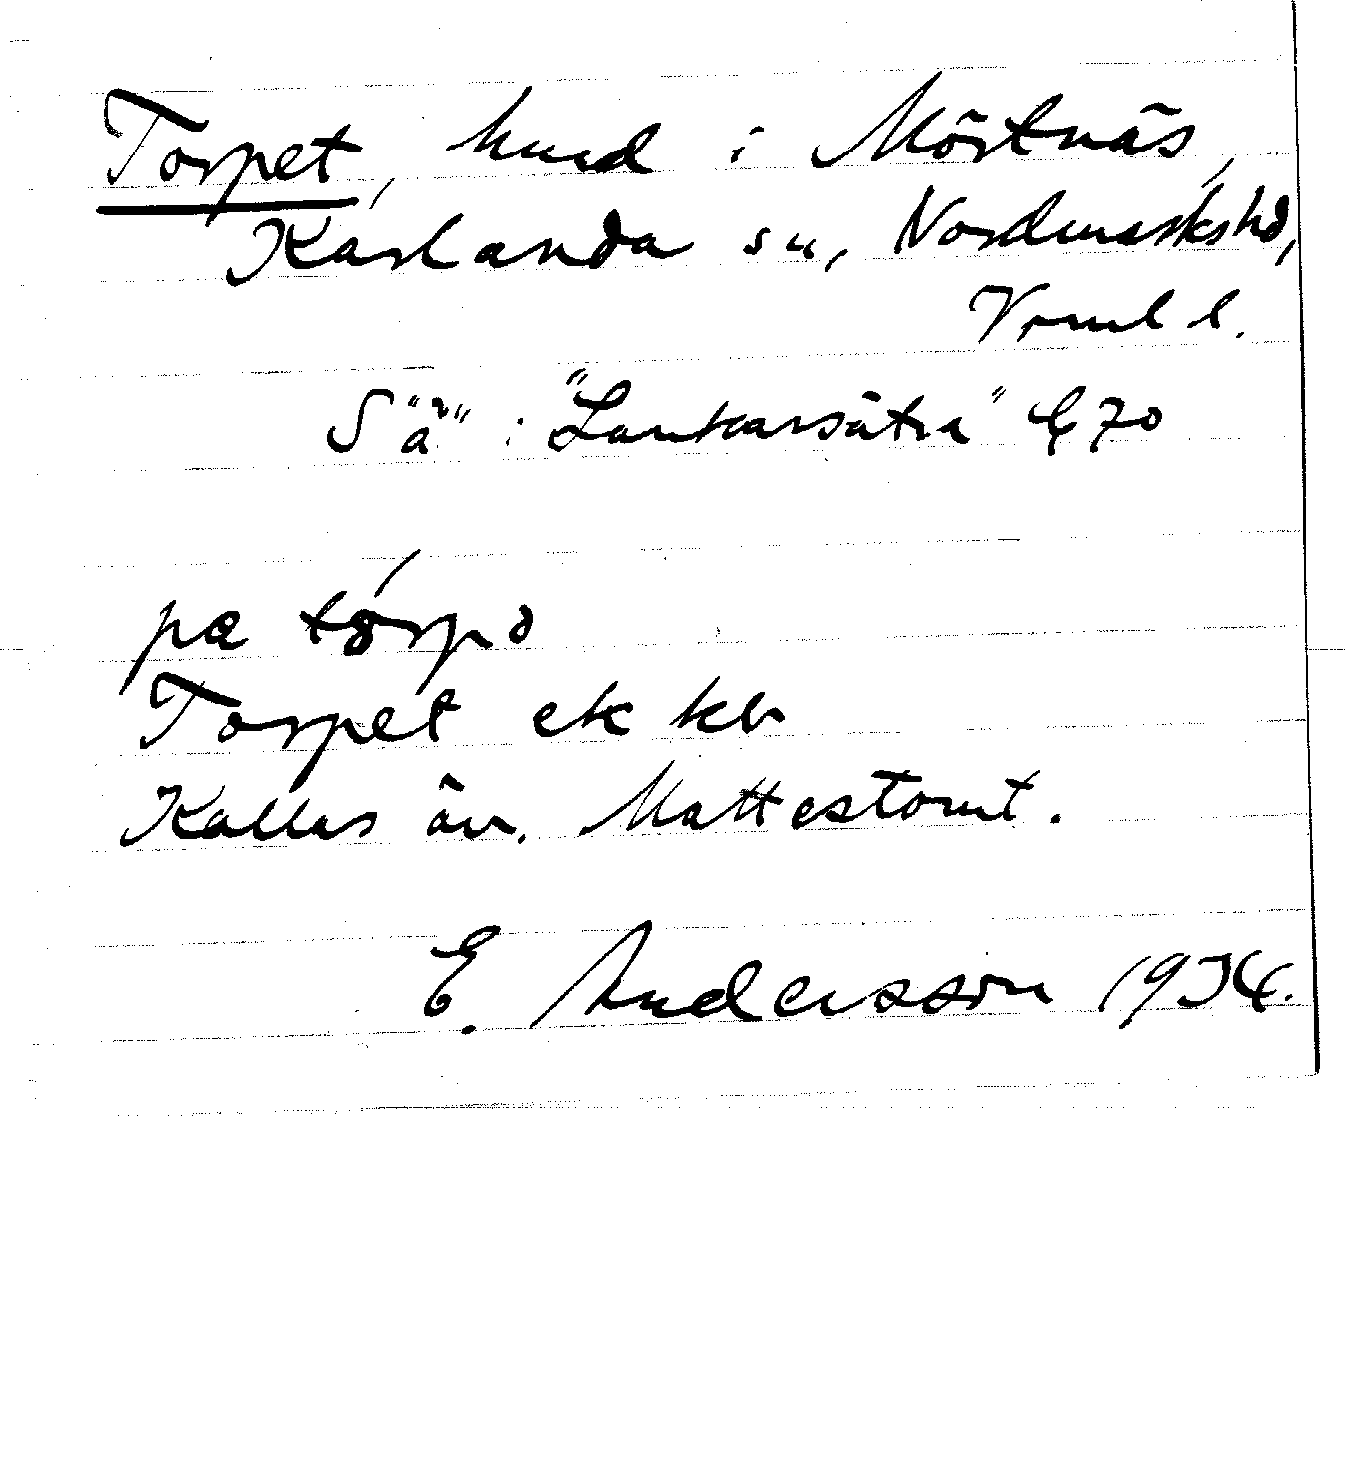 Torpet, hmd i Mörtnäs,
Karlanda sn, Nordmarks hd,
Vrml l.
S "å" : "Lankarsätra" E 70
pa tǿrpə
Torpet ek kb
Kallas äv. Mattestomt.
E. Andersson 1934.